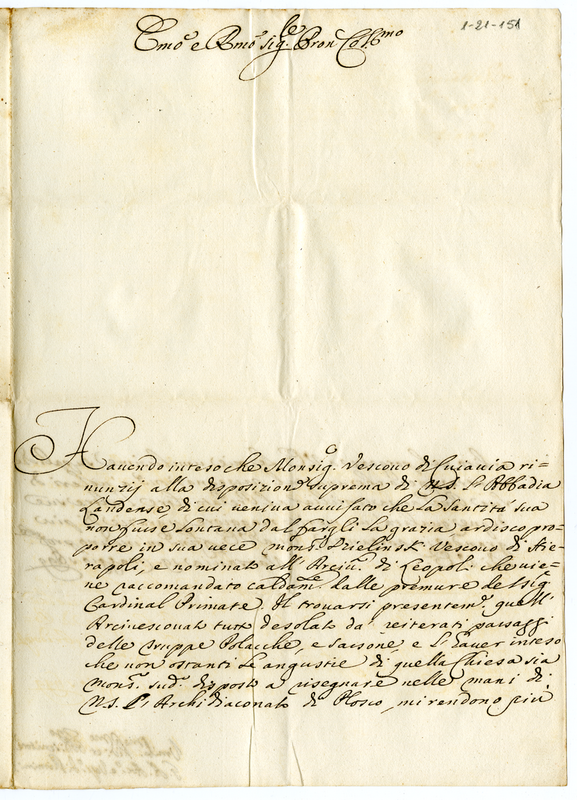 1-21-151
Em.o e Rmo Sig.le Pron Col.mo
Hauendo inteso che Monsig.o Vescouo di Cuiauia ri=
nunzij alla disposizione suprema di N.S. l'Abbadia
Landense di cui ueniua auuisato che La Santità sua
non fusse Lontana dal fargli La grazia ardisco pro=
porre in sua uece mons. Zielinsk Vescouo di Hie=
rapoli, e nominato all'Arciu. di Leopoli che uie=
ne raccomandato caldam.e dalle premure del Sig.
Cardinal Primate. Il trouarsi presentem.e quell'
Arciuescouat tutt desolato da reiterati passaggi
delle truppe Polacche, e Sassone, e L'hauer inteso
che non ostanti Le angustie di quella Chiesa sia
Mons. sud. disposto a risegnare nelle mani di
N.S. l'Archidiaconato di Plosco, mi rendono più